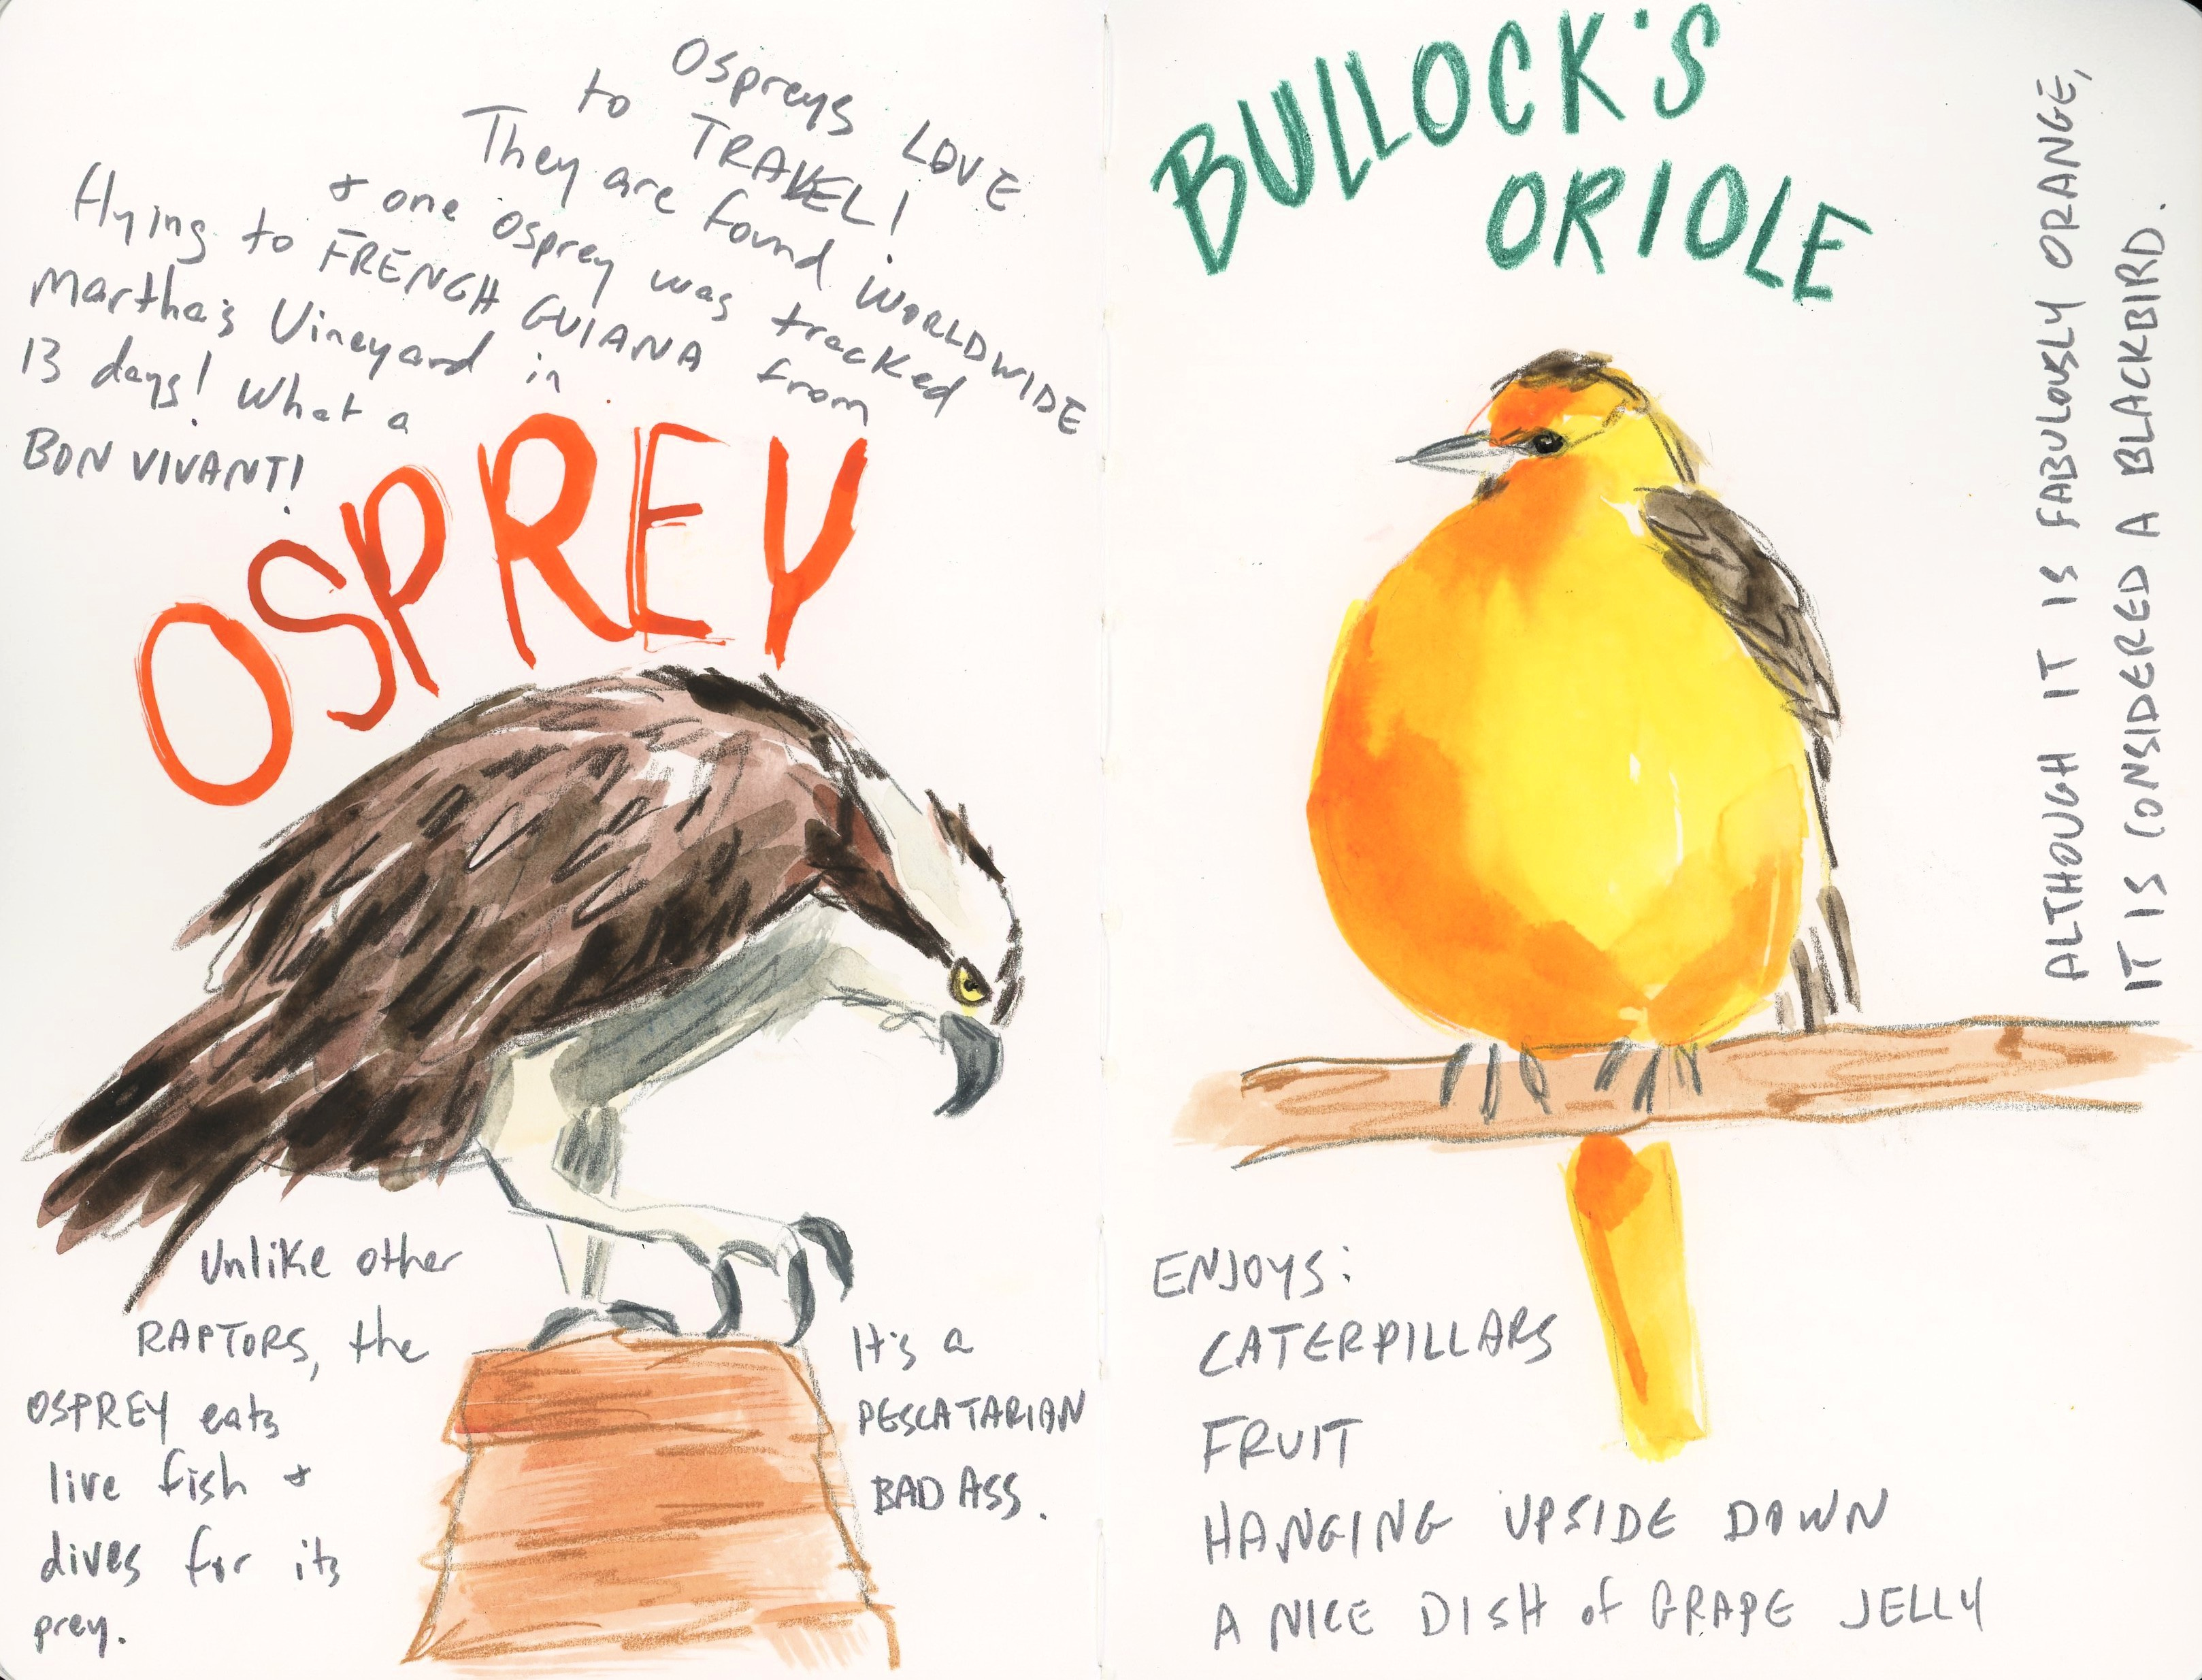 Ospreys LOVE
to TRAVEL!
They are found WORLDWIDE
& one osprey was tracked
flying to FRENCH GUIANA from
Martha's Vineyard in
13 days! What a
BON VIVANT!
OSPREY
Unlike other
RAPTORS, the
OSPREY eats
live fish &
dives for its
prey.
It's a
PESCATARIAN
BAD ASS.
BULLOCK'S
ORIOLE
ALTHOUGH IT IS FABULOUSLY ORANGE,
IT IS CONSIDERED A BLACKBIRD.
ENJOYS:
CATERPILLARS
FRUIT
HANGING UPSIDE DOWN
A NICE DISH of GRAPE JELLY